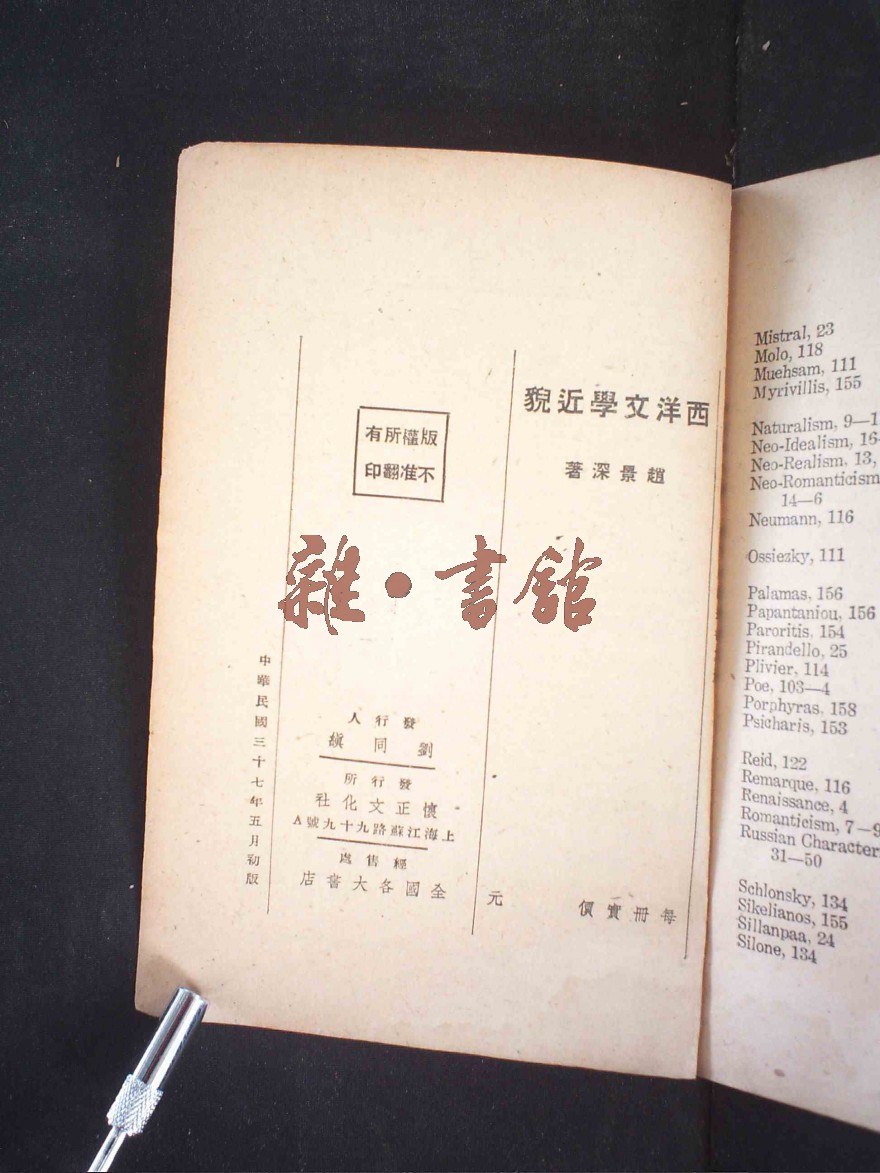 西洋文學近貌
趙景深著
每冊實價
元
版權所有
不准翻印
發行人
劉同縝
發行所
懷正文化社
上海江蘇路九十九號A
經售處
全國各大書店
中華民國三十七年五月初版
雜·書館
Mistral, 23
Molo, 118
Muehsam, 111
Myrivillis, 155
Naturalism, 9—1
Neo-Idealism, 16-
Neo-Realism, 13,
Neo-Romanticism
14—6
Neumann, 116
Ossiezky, 111
Palamas, 156
Papantaniou, 156
Paroritis, 154
Pirandello, 25
Plivier, 114
Poe, 103—4
Porphyras, 158
Psicharis, 153
Reid, 122
Remarque, 116
Renaissance, 4
Romanticism, 7—9
Russian Character
31—50
Schlonsky, 134
Sikelianos, 155
Sillanpaa, 24
Silone, 134